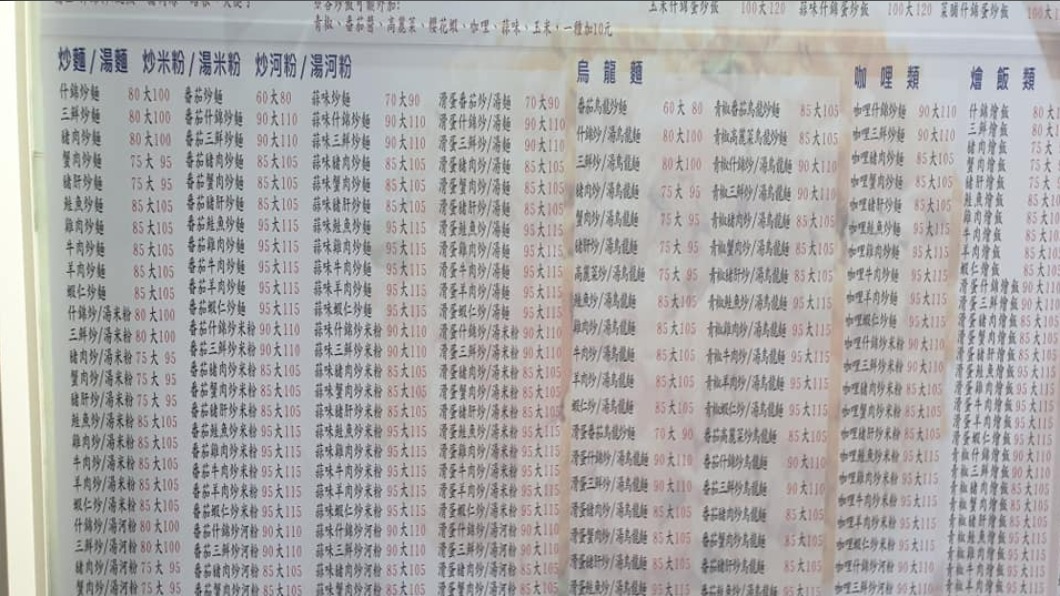 青椒、番茄醬、高麗菜、櫻花蝦、咖哩、蒜味、玉米，一種加10元
玉米什錦蛋炒飯 100大120 蒜味什錦蛋炒飯 100大120 菜脯什錦蛋炒飯
炒麵/湯麵 炒米粉/湯米粉 炒河粉/湯河粉
什錦炒麵 80大100
三鮮炒麵 80大100
豬肉炒麵 80大100
蟹肉炒麵 75大95
豬肝炒麵 75大95
鮭魚炒麵 85大105
雞肉炒麵 85大105
牛肉炒麵 85大105
羊肉炒麵 85大105
蝦仁炒麵 85大105
什錦炒/湯米粉 80大100
三鮮炒/湯米粉 80大100
豬肉炒/湯米粉 75大95
蟹肉炒/湯米粉 75大95
豬肝炒/湯米粉 75大95
鮭魚炒/湯米粉 85大105
雞肉炒/湯米粉 85大105
牛肉炒/湯米粉 85大105
羊肉炒/湯米粉 85大105
蝦仁炒/湯米粉 85大105
什錦炒/湯河粉 80大100
三鮮炒/湯河粉 80大100
豬肉炒/湯河粉 75大95
蟹肉炒/湯河粉
番茄炒麵 60大80
番茄什錦炒麵 90大110
番茄三鮮炒麵 90大110
番茄豬肉炒麵 85大105
番茄蟹肉炒麵 85大105
番茄豬肝炒麵 85大105
番茄鮭魚炒麵 95大115
番茄雞肉炒麵 95大115
番茄牛肉炒麵 95大115
番茄羊肉炒麵 95大115
番茄蝦仁炒麵 95大115
番茄什錦炒米粉 90大110
番茄三鮮炒米粉 90大110
番茄豬肉炒米粉 85大105
番茄蟹肉炒米粉 85大105
番茄豬肝炒米粉 85大105
番茄鮭魚炒米粉 95大115
番茄雞肉炒米粉 95大115
番茄牛肉炒米粉 95大115
番茄羊肉炒米粉 95大115
番茄蝦仁炒米粉 95大115
番茄什錦炒河粉 90大110
番茄三鮮炒河粉 90大110
番茄豬肉炒河粉 85大105
番茄蟹肉炒河粉 85大105
蒜味炒麵 70大90
蒜味什錦炒麵 90大110
蒜味三鮮炒麵 90大110
蒜味豬肉炒麵 85大105
蒜味蟹肉炒麵 85大105
蒜味豬肝炒麵 85大105
蒜味鮭魚炒麵 95大115
蒜味雞肉炒麵 95大115
蒜味牛肉炒麵 95大115
蒜味羊肉炒麵 95大115
蒜味蝦仁炒麵 95大115
蒜味什錦炒米粉 90大110
蒜味三鮮炒米粉 90大110
蒜味豬肉炒米粉 85大105
蒜味蟹肉炒米粉 85大105
蒜味豬肝炒米粉 85大105
蒜味鮭魚炒米粉 95大115
蒜味雞肉炒米粉 95大115
蒜味牛肉炒米粉 95大115
蒜味羊肉炒米粉 95大115
蒜味蝦仁炒米粉 95大115
蒜味什錦炒河粉 90大110
蒜味三鮮炒河粉 90大110
蒜味豬肉炒河粉 85大105
蒜味蟹肉炒河粉 85大105
滑蛋番茄炒/湯麵 70大90
滑蛋什錦炒/湯麵 90大110
滑蛋三鮮炒/湯麵 90大110
滑蛋豬肉炒/湯麵 85大105
滑蛋蟹肉炒/湯麵 85大105
滑蛋豬肝炒/湯麵 85大105
滑蛋鮭魚炒/湯麵 95大115
滑蛋雞肉炒/湯麵 95大115
滑蛋牛肉炒/湯麵 95大115
滑蛋羊肉炒/湯麵 95大115
滑蛋蝦仁炒/湯麵 95大115
滑蛋什錦炒/湯米粉 90大110
滑蛋三鮮炒/湯米粉 90大110
滑蛋豬肉炒/湯米粉 85大105
滑蛋蟹肉炒/湯米粉 85大105
滑蛋豬肝炒/湯米粉 85大105
滑蛋鮭魚炒/湯米粉 95大115
滑蛋雞肉炒/湯米粉 95大115
滑蛋牛肉炒/湯米粉 95大115
滑蛋羊肉炒/湯米粉 95大115
滑蛋蝦仁炒/湯米粉 95大115
滑蛋什錦炒/湯河粉 90大110
滑蛋三鮮炒/湯河粉 90大110
滑蛋豬肉炒/湯河粉 85大105
滑蛋蟹肉炒/湯河粉 85大105
烏龍麵
番茄烏龍炒麵 60大80
什錦炒/湯烏龍麵 80大100
三鮮炒/湯烏龍麵 80大100
豬肉炒/湯烏龍麵 75大95
蟹肉炒/湯烏龍麵 75大95
豬肝炒/湯烏龍麵 75大95
高麗菜炒/烏龍麵 75大95
鮭魚炒/湯烏龍麵 85大105
雞肉炒/湯烏龍麵 85大105
牛肉炒/湯烏龍麵 85大105
羊肉炒/湯烏龍麵 85大105
蝦仁炒/湯烏龍麵 85大105
滑蛋番茄烏龍炒麵 70大90
滑蛋什錦炒/湯烏龍麵 90大110
滑蛋三鮮炒/湯烏龍麵 90大110
滑蛋豬肉炒/湯烏龍麵 85大105
滑蛋蟹肉炒/湯烏龍麵 85大105
滑蛋豬肝炒/湯烏龍麵 85大105
滑蛋鮭魚炒/湯烏龍麵 95大115
青椒番茄烏龍炒麵 85大105
青椒高麗菜烏龍炒麵 85大105
青椒什錦炒/湯烏龍麵 90大110
青椒三鮮炒/湯烏龍麵 90大110
青椒豬肉炒/湯烏龍麵 85大105
青椒蟹肉炒/湯烏龍麵 85大105
青椒豬肝炒/湯烏龍麵 85大105
青椒鮭魚炒/湯烏龍麵 95大115
青椒雞肉炒/湯烏龍麵 95大115
青椒牛肉炒/湯烏龍麵 95大115
青椒羊肉炒/湯烏龍麵 95大115
青椒蝦仁炒/湯烏龍麵 95大115
番茄高麗菜炒烏龍麵 85大105
番茄什錦炒烏龍麵 90大110
番茄三鮮炒烏龍麵 90大110
番茄豬肉炒烏龍麵 85大105
番茄蟹肉炒烏龍麵 85大105
番茄豬肝炒烏龍麵 85大105
番茄鮭魚炒烏龍麵 95大115
咖哩類
咖哩什錦炒麵 90大110
咖哩三鮮炒麵 90大110
咖哩豬肉炒麵 85大105
咖哩蟹肉炒麵 85大105
咖哩豬肝炒麵 85大105
咖哩鮭魚炒麵 95大115
咖哩雞肉炒麵 95大115
咖哩牛肉炒麵 95大115
咖哩羊肉炒麵 95大115
咖哩蝦仁炒麵 95大115
咖哩什錦炒米粉 90大110
咖哩三鮮炒米粉 90大110
咖哩豬肉炒米粉 85大105
咖哩蟹肉炒米粉 85大105
咖哩豬肝炒米粉 85大105
咖哩鮭魚炒米粉 95大115
咖哩雞肉炒米粉 95大115
咖哩牛肉炒米粉 95大115
咖哩羊肉炒米粉 95大115
咖哩蝦仁炒米粉 95大115
咖哩什錦炒河粉 90大110
咖哩三鮮炒河粉 90大110
燴飯類
什錦燴飯 80大
三鮮燴飯 80大
豬肉燴飯 75大
蟹肉燴飯 75大
豬肝燴飯 75大
鮭魚燴飯 85大
雞肉燴飯 85大
牛肉燴飯 85大
羊肉燴飯 85大
蝦仁燴飯 85大
滑蛋什錦燴飯 90大110
滑蛋三鮮燴飯 90大110
滑蛋豬肉燴飯 85大105
滑蛋蟹肉燴飯 85大105
滑蛋豬肝燴飯 85大105
滑蛋鮭魚燴飯 95大115
滑蛋雞肉燴飯 95大115
滑蛋牛肉燴飯 95大115
滑蛋羊肉燴飯 95大115
滑蛋蝦仁燴飯 95大115
青椒什錦燴飯 90大110
青椒三鮮燴飯 90大110
青椒豬肉燴飯 85大105
青椒蟹肉燴飯 85大105
青椒豬肝燴飯 85大105
青椒鮭魚燴飯 95大115
青椒雞肉燴飯 95大115
青椒牛肉燴飯 95大115
青椒羊肉燴飯 95大115